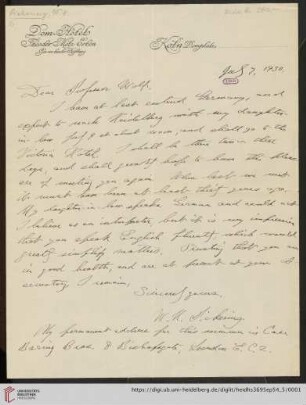 Pickering, W. H.
Dom-Hotel
Theodor Metz Erben
Köln, Domplatz
July 7, 1930.
Dear Professor Wolf.
I have at last reached Germany, and
expect to reach Heidelberg with my daughter-
in-law July 9 at about noon, and shall go to the
Victoria Hotel. I shall be there two or three
days, and shall greatly hope to have the pleasure
of meeting you again. When last we met
it must have been at least thirty years ago.
My daughter in law speaks German and could act
I believe as an interpreter, but it is my impression
that you speak English fluently which would
greatly simplify matters. Trusting that you are
in good health, and are at present at your
Observatory I remain,
Sincerely yours
W. H. Pickering
My permanent address for this summer is Care
Baring Bros. 8 Bishopsgate, London E.C.2.
https://digi.ub.uni-heidelberg.de/diglit/heidhs3695ep94_5/0001